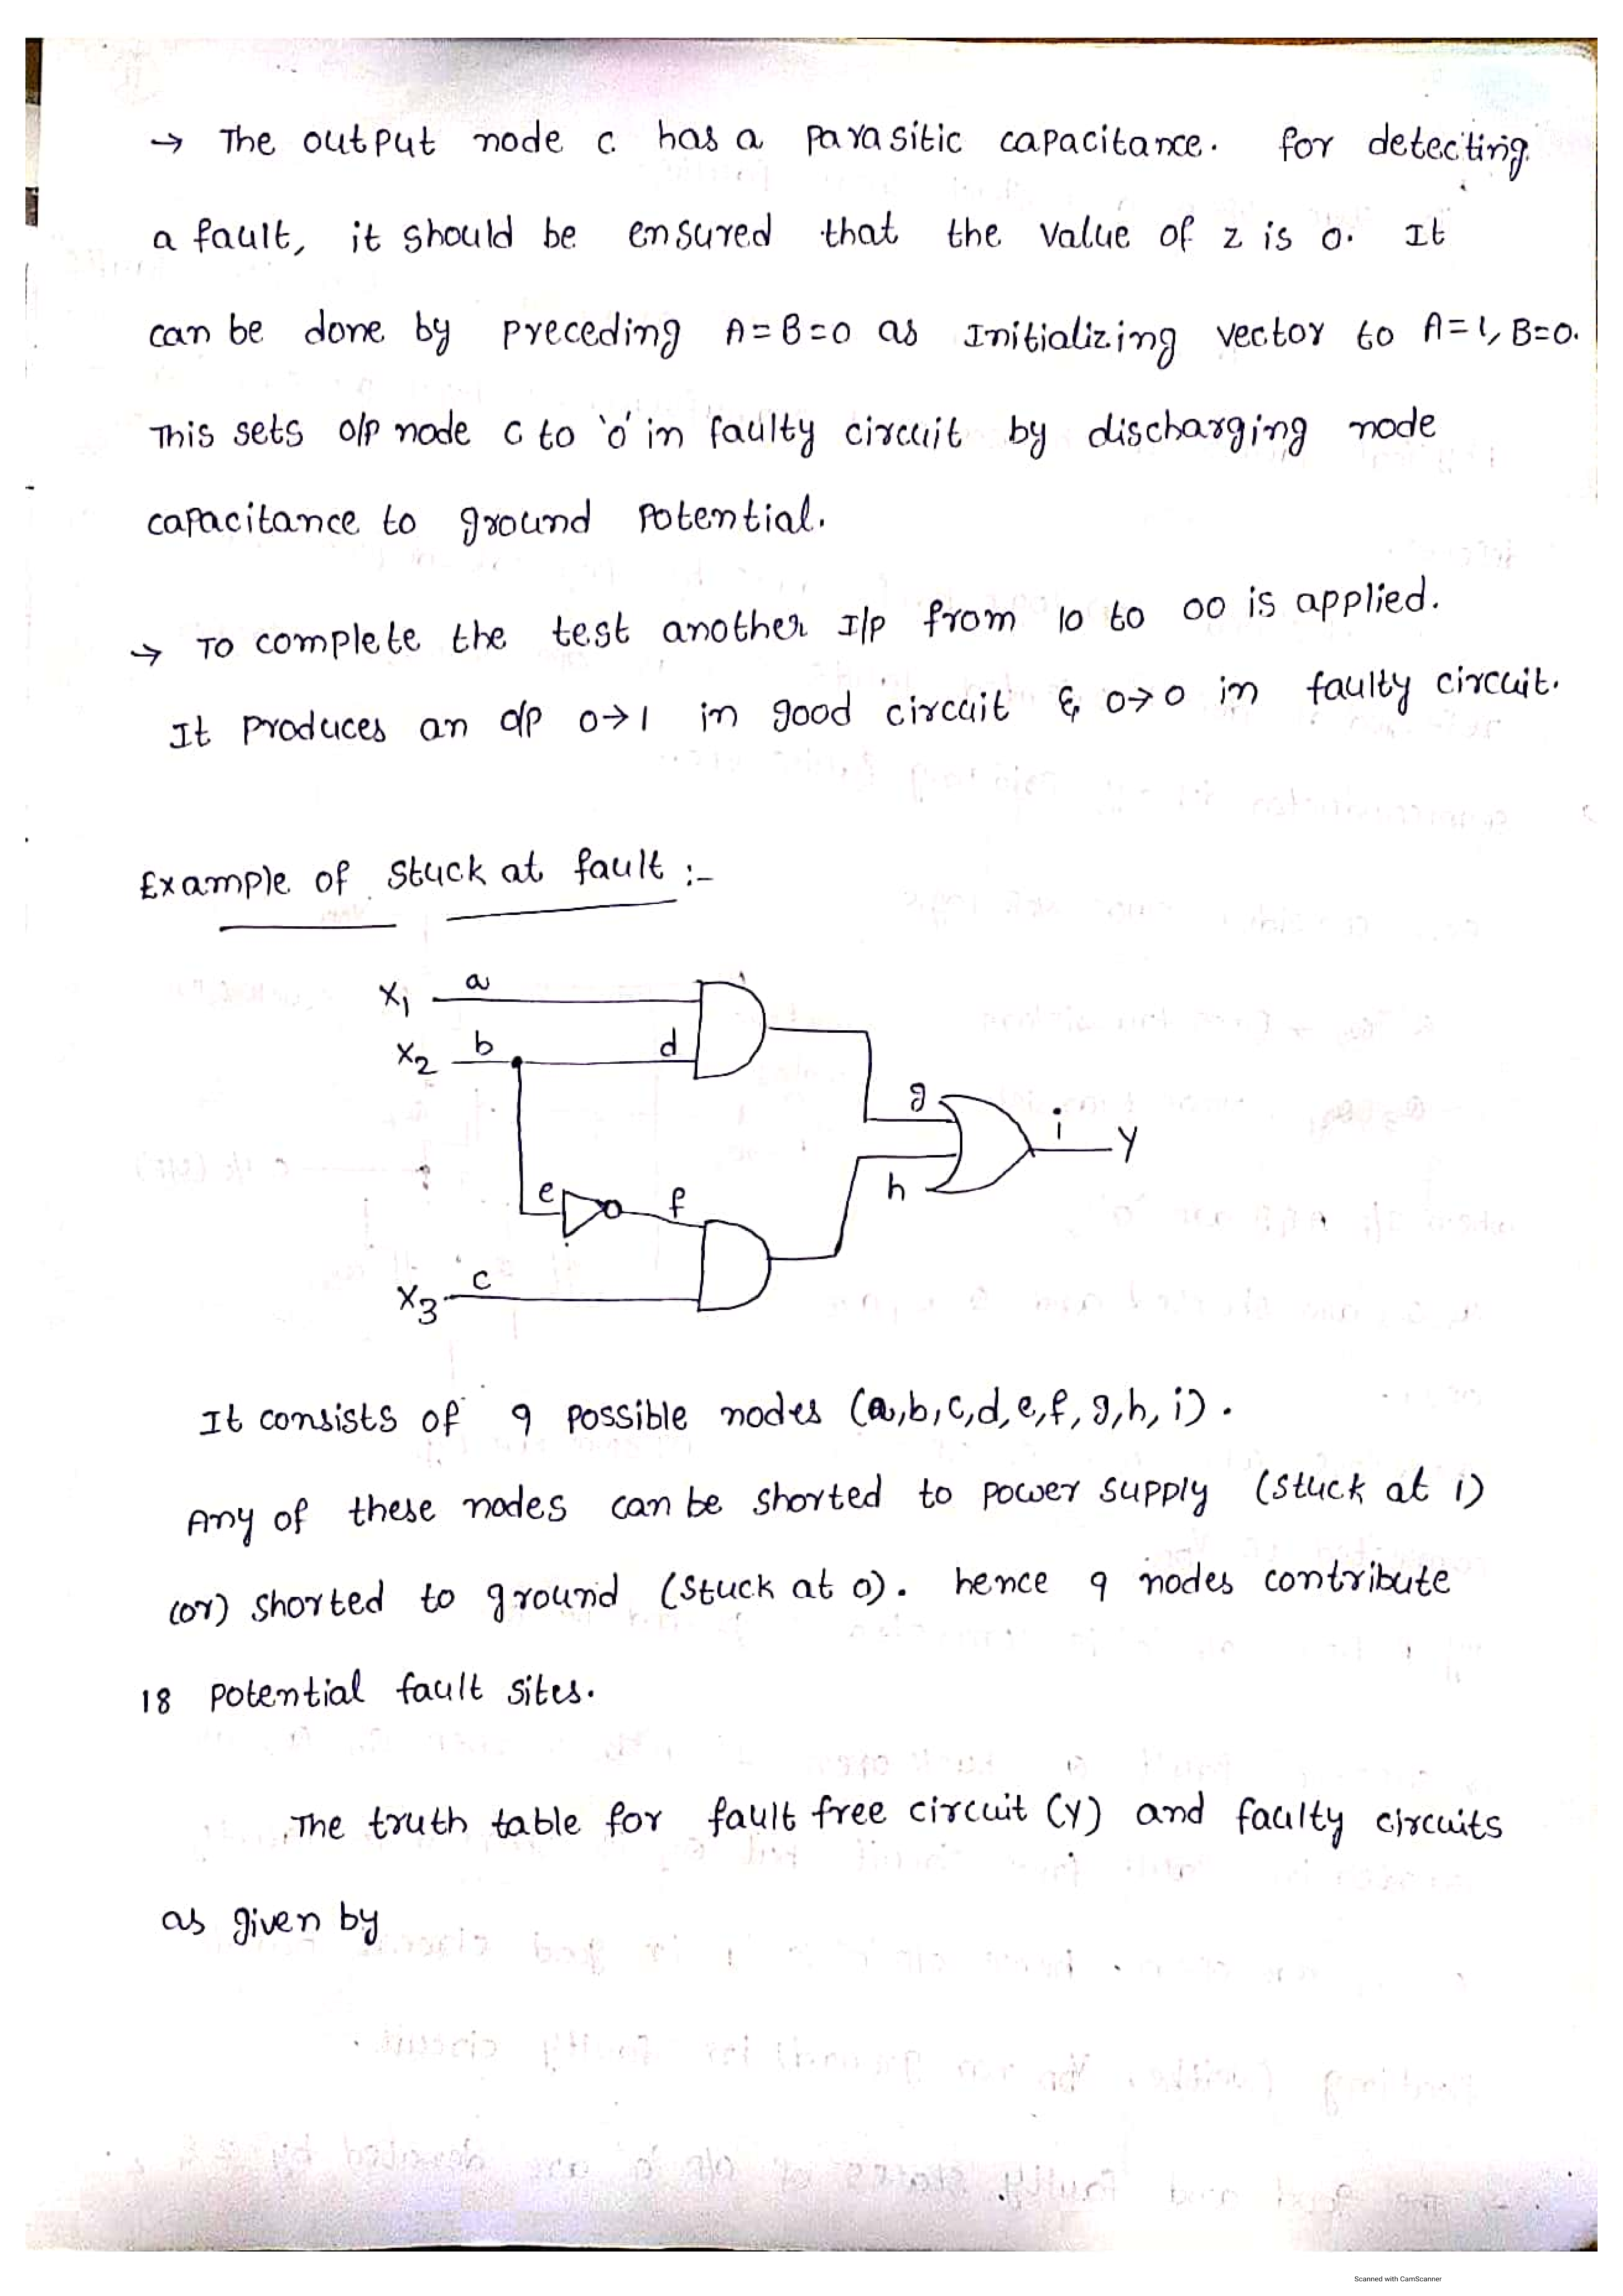 → The output node c has a parasitic capacitance. for detecting
a fault, it should be ensured that the value of z is 0. It
can be done by preceding A=B=0 as Initializing vector to A=1, B=0.
This sets o/p node c to '0' in faulty circuit by discharging node
capacitance to ground potential.
→ To complete the test another I/p from 10 to 00 is applied.
It produces an o/p 0→1 in good circuit & 0→0 in faulty circuit.
Example of stuck at fault :-
X1 a
X2 b d
g
i y
h
e f
X3 c
It consists of 9 possible nodes (a,b,c,d,e,f,g,h,i).
Any of these nodes can be shorted to power supply (stuck at 1)
(or) shorted to ground (stuck at 0). hence 9 nodes contribute
18 potential fault sites.
The truth table for fault free circuit (Y) and faulty circuits
as given by
Scanned with CamScanner